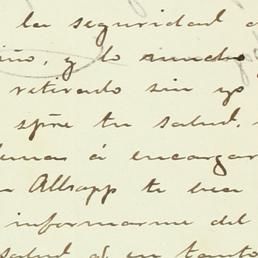 la seguridad d
iño, y lo mucho
retirado sin yo
spre tu salud.
emas á encargar
Allsapp te vea
informarme del
salud á en tanto